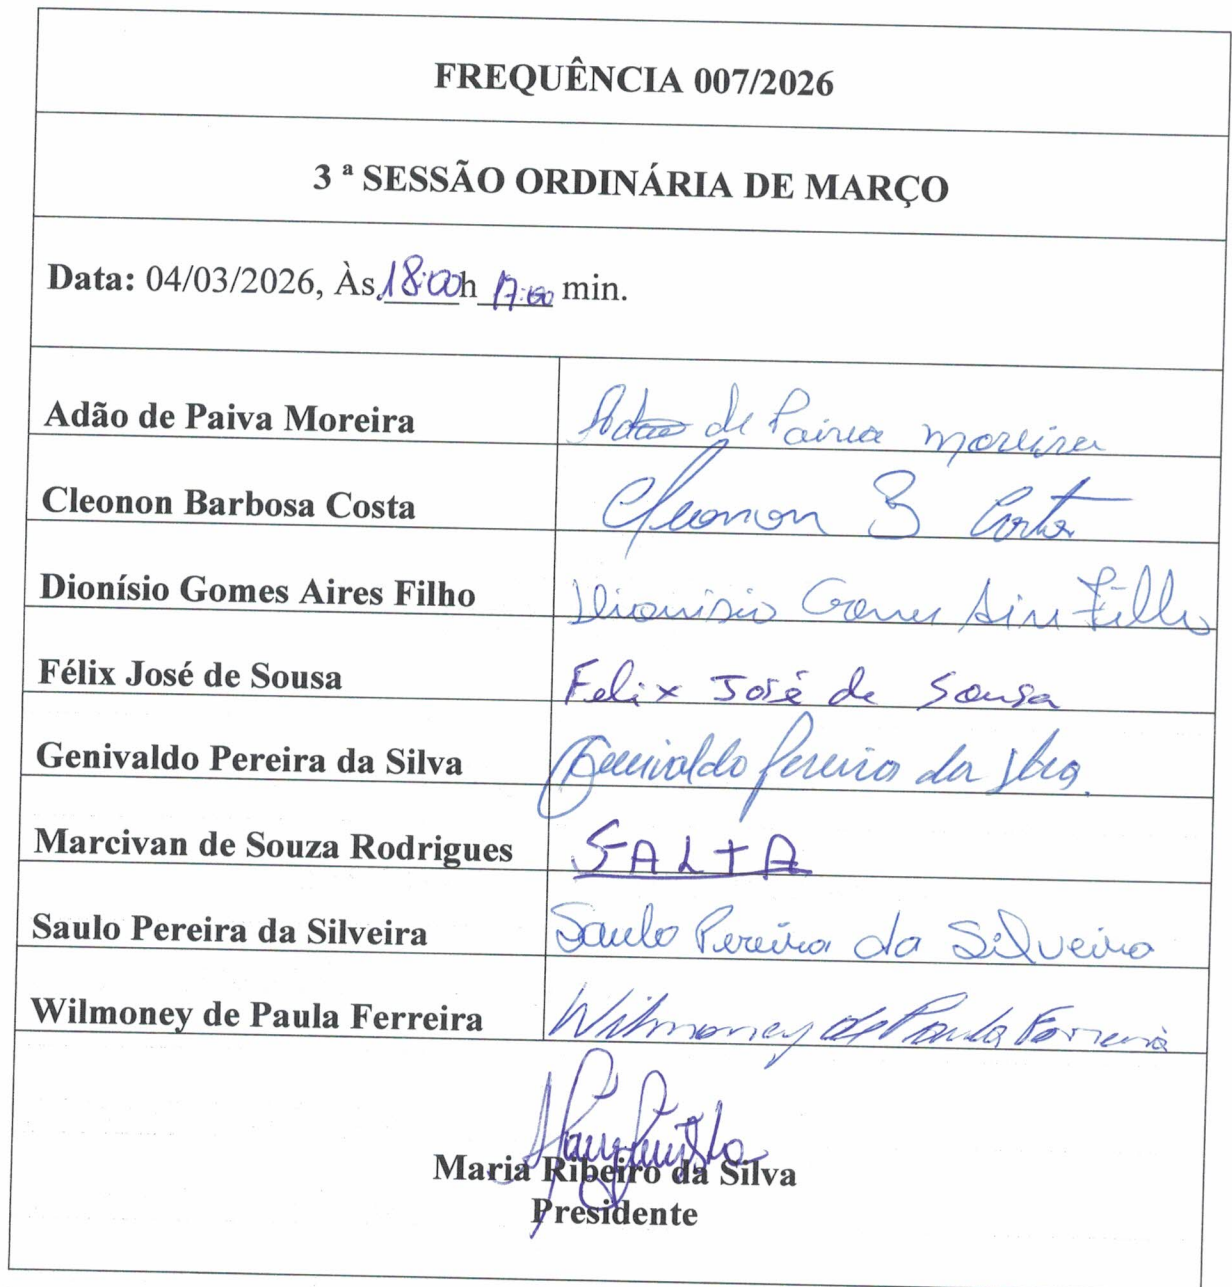 FREQUÊNCIA 007/2026
3 ª SESSÃO ORDINÁRIA DE MARÇO
Data: 04/03/2026, Às 18:00h 17:00 min.
Adão de Paiva Moreira Adao de Paiva Moreira
Cleonon Barbosa Costa Cleonon B Costa
Dionísio Gomes Aires Filho Dionisio Gomes Aires Filho
Félix José de Sousa Felix José de Sousa
Genivaldo Pereira da Silva Genivaldo Pereira da Silva.
Marcivan de Souza Rodrigues FALTA
Saulo Pereira da Silveira Saulo Pereira da Silveira
Wilmoney de Paula Ferreira Wilmoney de Paula Ferreira
Maria Ribeiro da Silva
Presidente